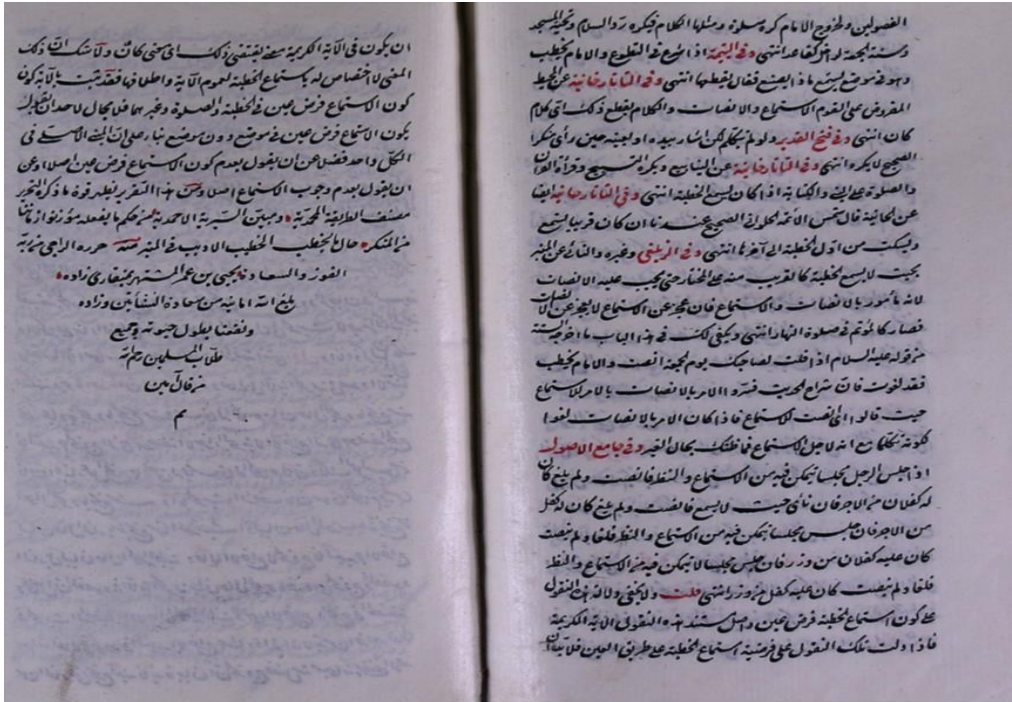 الفصولين ولخروج الامام كره صلوة ومثلها الكلام فيكره رد السلام وتحية المسجد
وسنة الجمعة لو ان كلما عد انتهى وفي اليتيمة اذا شرع في التطوع والامام يخطب
وهو في موضع يسمع ما ذا يصنع فقال يقطعها انتهى وفي التاتارخانية عن المحيط
المفروض على القوم الاستماع والانصات والكلام يقطع ذلك اى كلام
كان انتهى وفي فتح القدير ولو لم يتكلم لكن اشار بيده او بعينه حين رأى منكرا
الصحيح لا يكره انتهى وفي التاتارخانية عن الينابيع ويكره التسبيح وقرأة القرآن
والصلوة على النبي والكتابة اذا كان يسمع الخطبة انتهى وفي التاتارخانية ايضا
عن الخانية قال شمس الائمة الحلوانى الصحيح عندنا ان كان قريبا يستمع
ويسكت من اول الخطبة الى آخرها انتهى وفي الزيلعي وغيره والنائى عن المنبر
بحيث لا يسمع الخطبة كالقريب منه على المختار حتى يجب عليه الانصات
لانه مأمور بالانصات والاستماع فان عجز عن الاستماع لا يعجز عن الانصات
فصار كالمؤتم في صلوة النهار انتهى ويكفى لك في هذا الباب ما اخرجه الستة
من قوله عليه السلام اذا قلت لصاحبك يوم الجمعة انصت والامام يخطب
فقد لغوت فان شراح الحديث فسروا الامر بالانصات بالامر للاستماع
حيث قالوا اى انصت للاستماع فاذا كان الامر بالانصات لغوا
لكونه تكلما مع انه لاجل الاستماع فما ظنك بحال الغير وفي جامع الاصول
اذا جلس الرجل مجلسا يتمكن فيه من الاستماع والنظر فانصت ولم يلغ كان
له كفلان من الاجر فان نأى حيث لا يسمع فانصت ولم يلغ كان له كفل
من الاجر فان جلس مجلسا يتمكن فيه من الاستماع والنظر فلغا ولم ينصت
كان عليه كفلان من وزر فان جلس مجلسا لا يتمكن فيه من الاستماع والنظر
فلغا ولم ينصت كان عليه كفل من وزر انتهى قلت ولا يخفى دلالة هذه النقول
على كون استماع الخطبة فرض عين واصل مستند هذه النقول الآية الكريمة
فاذا دلت تلك النقول على فرضية استماع الخطبة على طريق العين فلا بد
ان يكون في الآية الكريمة معنى يقتضى ذلك اى معنى كان ولا شك ان ذلك
المعنى لا اختصاص له باستماع الخطبة لعموم الآية واطلاقها فقد ثبت بالآية كون
كون الاستماع فرض عين في الخطبة والصلوة وغيرهما فلا مجال لاحد ان يقول
يكون الاستماع فرض عين في موضع دون موضع بناء على ان في
الكل واحد فضلا عن ان يقول بعدم كون الاستماع فرض عين اصلا وعن
ان يقول بعدم وجوب الاستماع اصلا ومن هذا التقرير يظهر قوة ما ذكره النحرير
مصنف الطريقة المحمدية ومبين السيرة الاحمدية من حكم ما يفعله مؤذنوا زماننا
من المنكر حال ما يخطب الخطيب الاديب في المنبر حرره الراجى من ربه
الفوز والسعادة يحيى بن عمر المشتهر بمنقارى زاده
بلغ الله امانيه من سعادة النشأتين وزاده
ونفعنا بطول حيوته وجميع
طلاب المسلمين رحم الله
من قال آمين
م